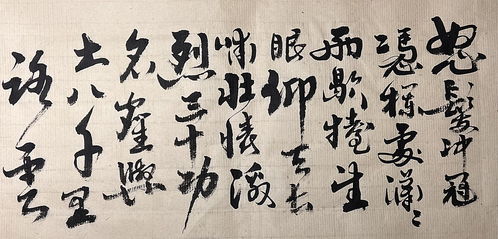 怒髮冲冠
憑欄處瀟〻
雨歇擡望
眼仰天長
嘯壯懷激
烈三十功
名塵與
土八千里
路雲